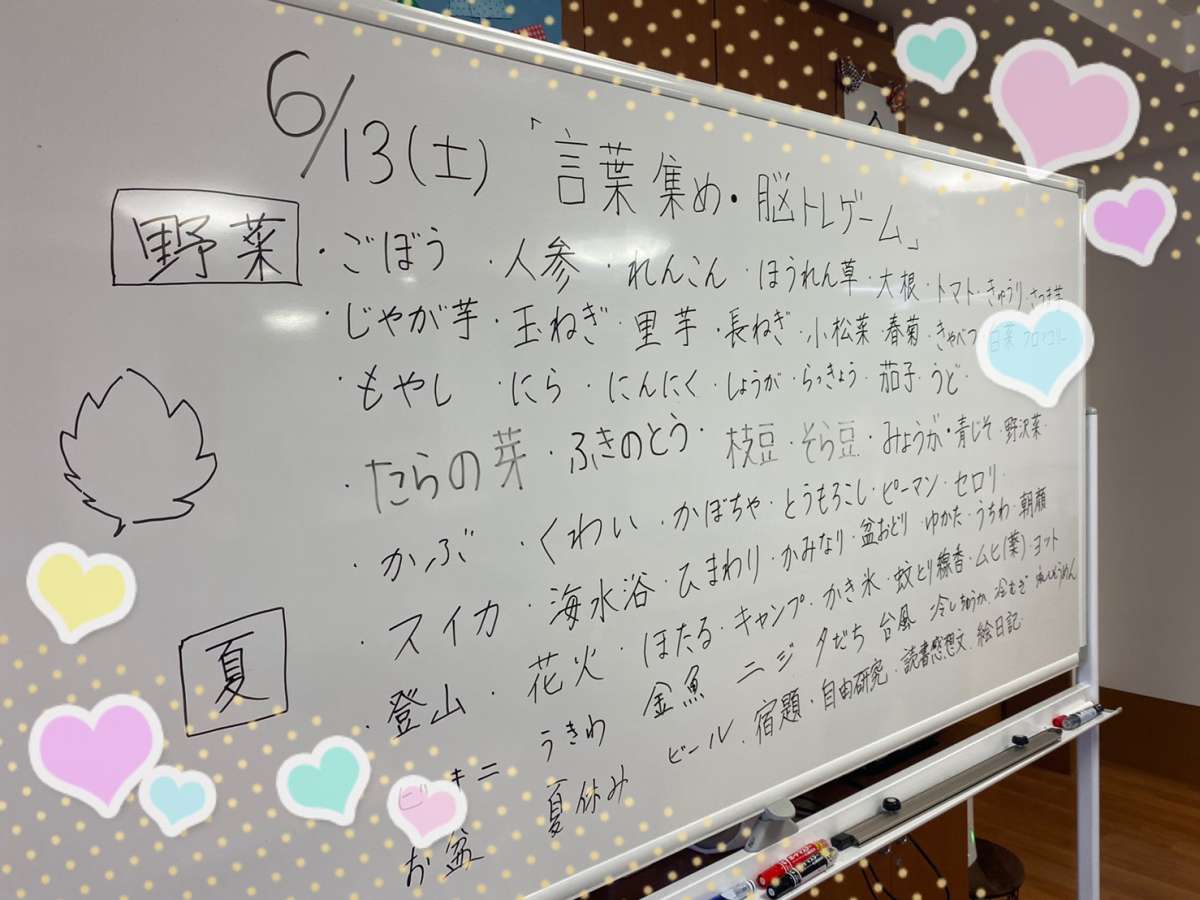 6/13(土)「言葉集め・脳トレゲーム」
野菜
・ごぼう ・人参 ・れんこん ・ほうれん草 ・大根・トマト・きゅうり・さつま芋
・じゃが芋 ・玉ねぎ ・里芋 ・長ねぎ ・小松菜・春菊・きゃべつ・白菜
・もやし ・にら ・にんにく ・しょうが ・らっきょう ・茄子・うど・
・たらの芽・ふきのとう・枝豆・そら豆・みょうが・青じそ・野沢菜・
・かぶ ・くわい ・かぼちゃ・とうもろこし・ピーマン・セロリ・
夏
・スイカ ・海水浴・ひまわり・かみなり・盆おどり・ゆかた・うちわ・朝顔
・登山・花火・ほたる・キャンプ・かき氷・蚊とり線香・ムヒ(薬)・ヨット
キニ うきわ 金魚 ニジ 夕だち 台風 冷しちゅうか、冷むぎ
お盆 夏休み ビール・宿題・自由研究・読書感想文・絵日記